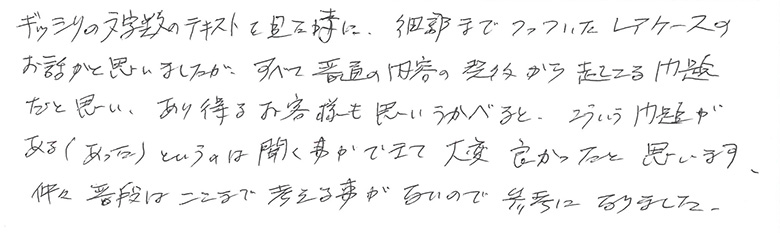 ギッシリの文字数のテキストを見た時に、細部までつっついたレアケースの
お話かと思いましたが、すべて普通の内容の契約から起こる問題
だと思い、あり得るお客様も思いうかべると、こういう問題が
ある(あった)というのは聞く事ができて大変良かったと思います、
中々普段はここまで考える事がないので参考になりました。